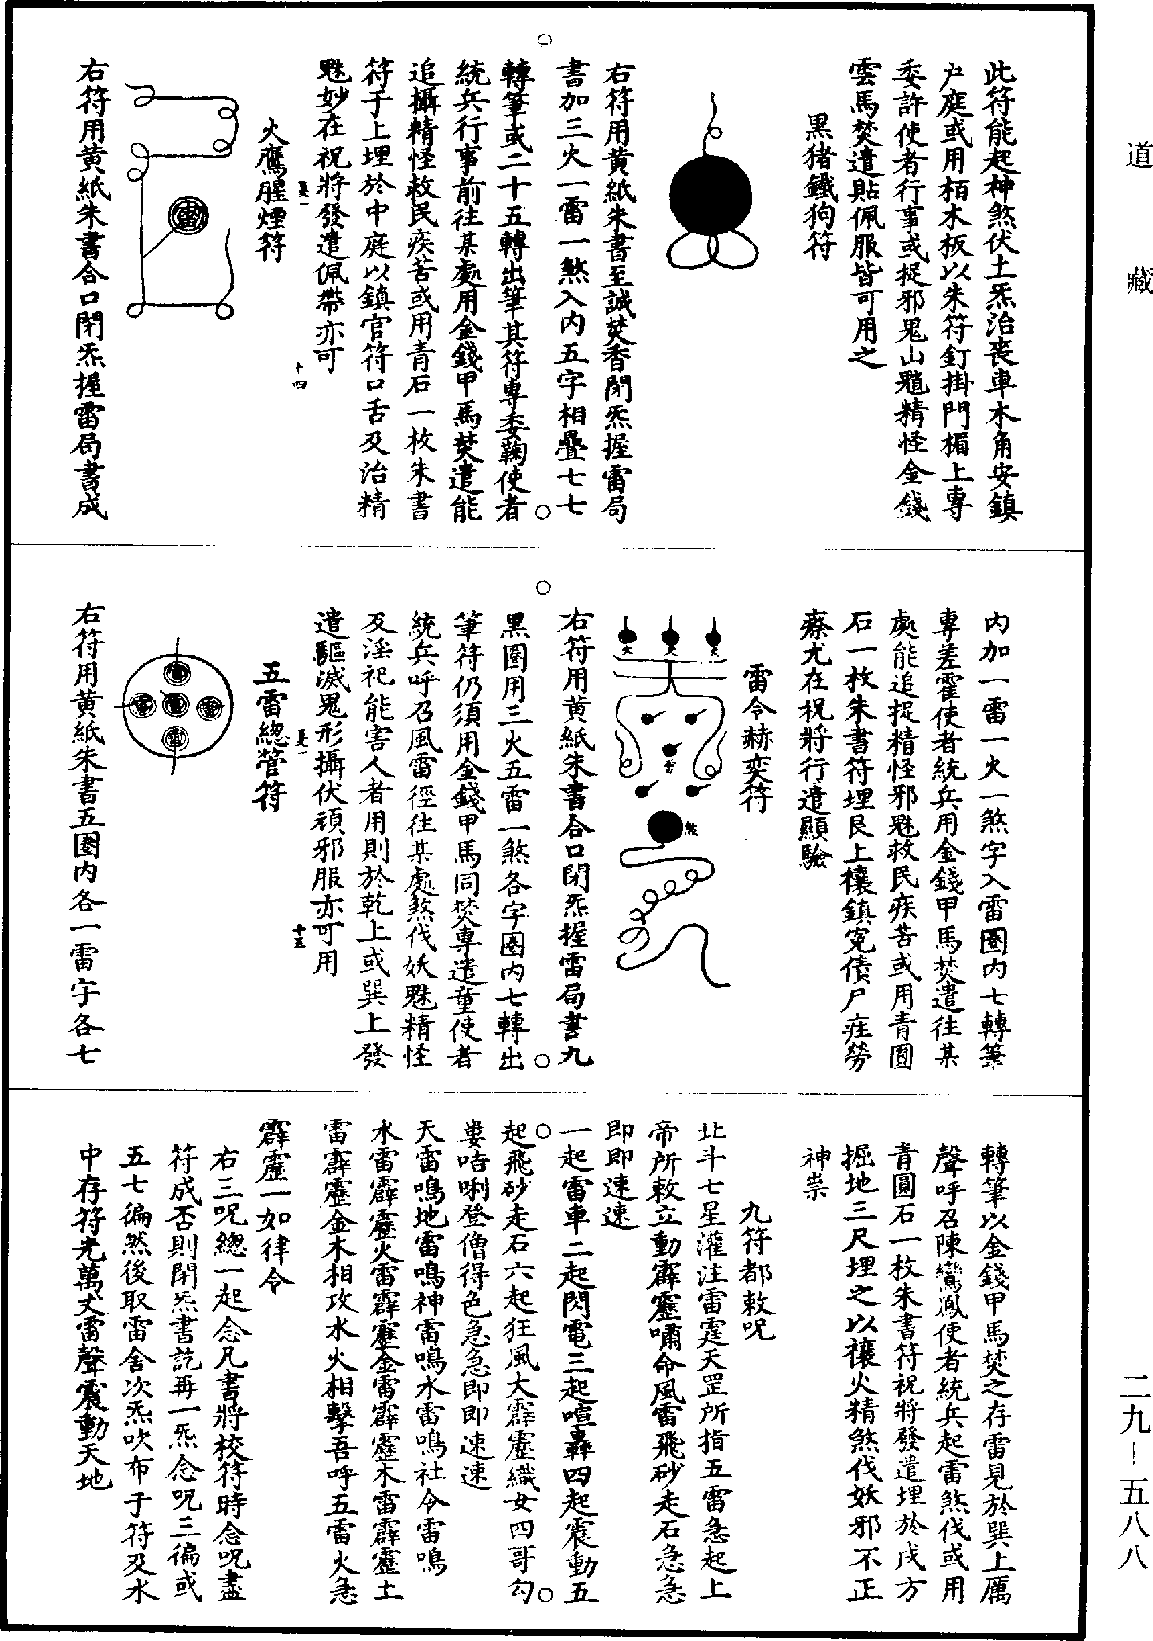 道藏
此符能起神煞伏土炁治喪車木角安鎮
戶庭或用栢木板以朱符釘掛門楣上專
委許使者行事或捉邪鬼山魈精怪金錢
雲馬焚遣貼佩服皆可用之
黑猪鐵狗符
右符用黃紙朱書至誠焚香閉炁握雷局
書加三火一雷一煞入內五字相疊七七
轉筆或二十五轉出筆其符專委鞠使者
統兵行事前往某處用金錢甲馬焚遣能
追攝精怪救民疾苦或用青石一枚朱書
符于上埋於中庭以鎮官符口舌及治精
魅妙在祝將發遣佩帶亦可
十四
火鷹腥煙符
雷
右符用黃紙朱書合口閉炁握雷局書成
內加一雷一火一煞字入雷圈內七轉筆
專差霍使者統兵用金錢甲馬焚遣往某
處能追捉精怪邪魅救民疾苦或用青圓
石一枚朱書符埋艮上禳鎮寃債尸疰勞
瘵尤在祝將行遣顯驗
雷令赫奕符
火 火 火
雷
煞
右符用黃紙朱書合口閉炁握雷局書九
黑圈用三火五雷一煞各字圈內七轉出
筆符仍須用金錢甲馬同焚專遣童使者
統兵呼召風雷徑往某處煞伐妖魅精怪
及淫祀能害人者用則於乾上或巽上發
遣驅滅鬼形攝伏頑邪服亦可用
十五
五雷緫管符
雷 雷 雷 雷 雷
右符用黃紙朱書五圈內各一雷字各七
轉筆以金錢甲馬焚之存雷見於巽上厲
聲呼召陳鸞鳳使者統兵起雷煞伐或用
青圓石一枚朱書符祝將發遣埋於戌方
掘地三尺埋之以禳火精煞伐妖邪不正
神祟
九符都敕呪
北斗七星灌注雷霆天罡所指五雷急起上
帝所敕立動霹靂嘯命風雷飛砂走石急急
即即速速
一起雷車二起閃電三起喧轟四起震動五
起飛砂走石六起狂風大霹靂織女四哥勾
婁唔唎登僧得色急急即即速速
天雷鳴地雷鳴神雷鳴水雷鳴社令雷鳴
水雷霹靂火雷霹靂金雷霹靂木雷霹靂土
雷霹靂金木相攻水火相擊吾呼五雷火急
霹靂一如律令
右三呪總一起念凡書將校符時念呪盡
符成否則閉炁書訖再一炁念呪三徧或
五七徧然後取雷舍次炁吹布于符及水
中存符光萬丈雷聲震動天地
二九－五八八